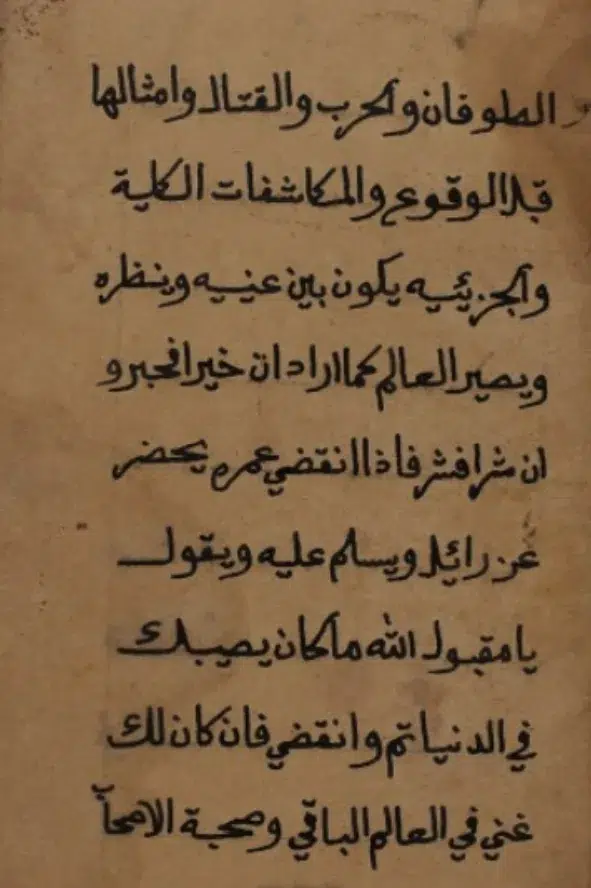 الطوفان والحرب والقتال وامثالها
قبل الوقوع والمكاشفات الكلية
والجزئيه يكون بين عنيه وينظره
ويصير العالم كما اراد ان خيرا فخير و
ان شرا فشر فاذا انقضي عمره يحضر
عزرائيل ويسلم عليه ويقول
يا مقبول الله ما كان يصيبك
في الدنيا تم وانقضي فان كان لك
غني في العالم الباقي وصحبة الاصحآ